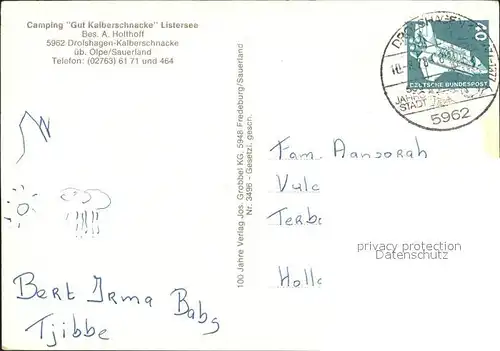 Camping "Gut Kalberschnacke" Listersee
Bes. A. Holthoff
5962 Drolshagen-Kalberschnacke
üb. Olpe/Sauerland
Telefon: (02763) 61 71 und 464
100 Jahre Verlag Jos. Grobbel KG, 5948 Fredeburg/Sauerland
Nr. 3496 - Gesetzl. gesch.
DEUTSCHE BUNDESPOST
DROLSHAGEN
JAHRE
STADT
5962
Fam. Aansorah
Vulc
Terbe
Holla
privacy protection
Datenschutz
Bert Irma Babs
Tjibbe